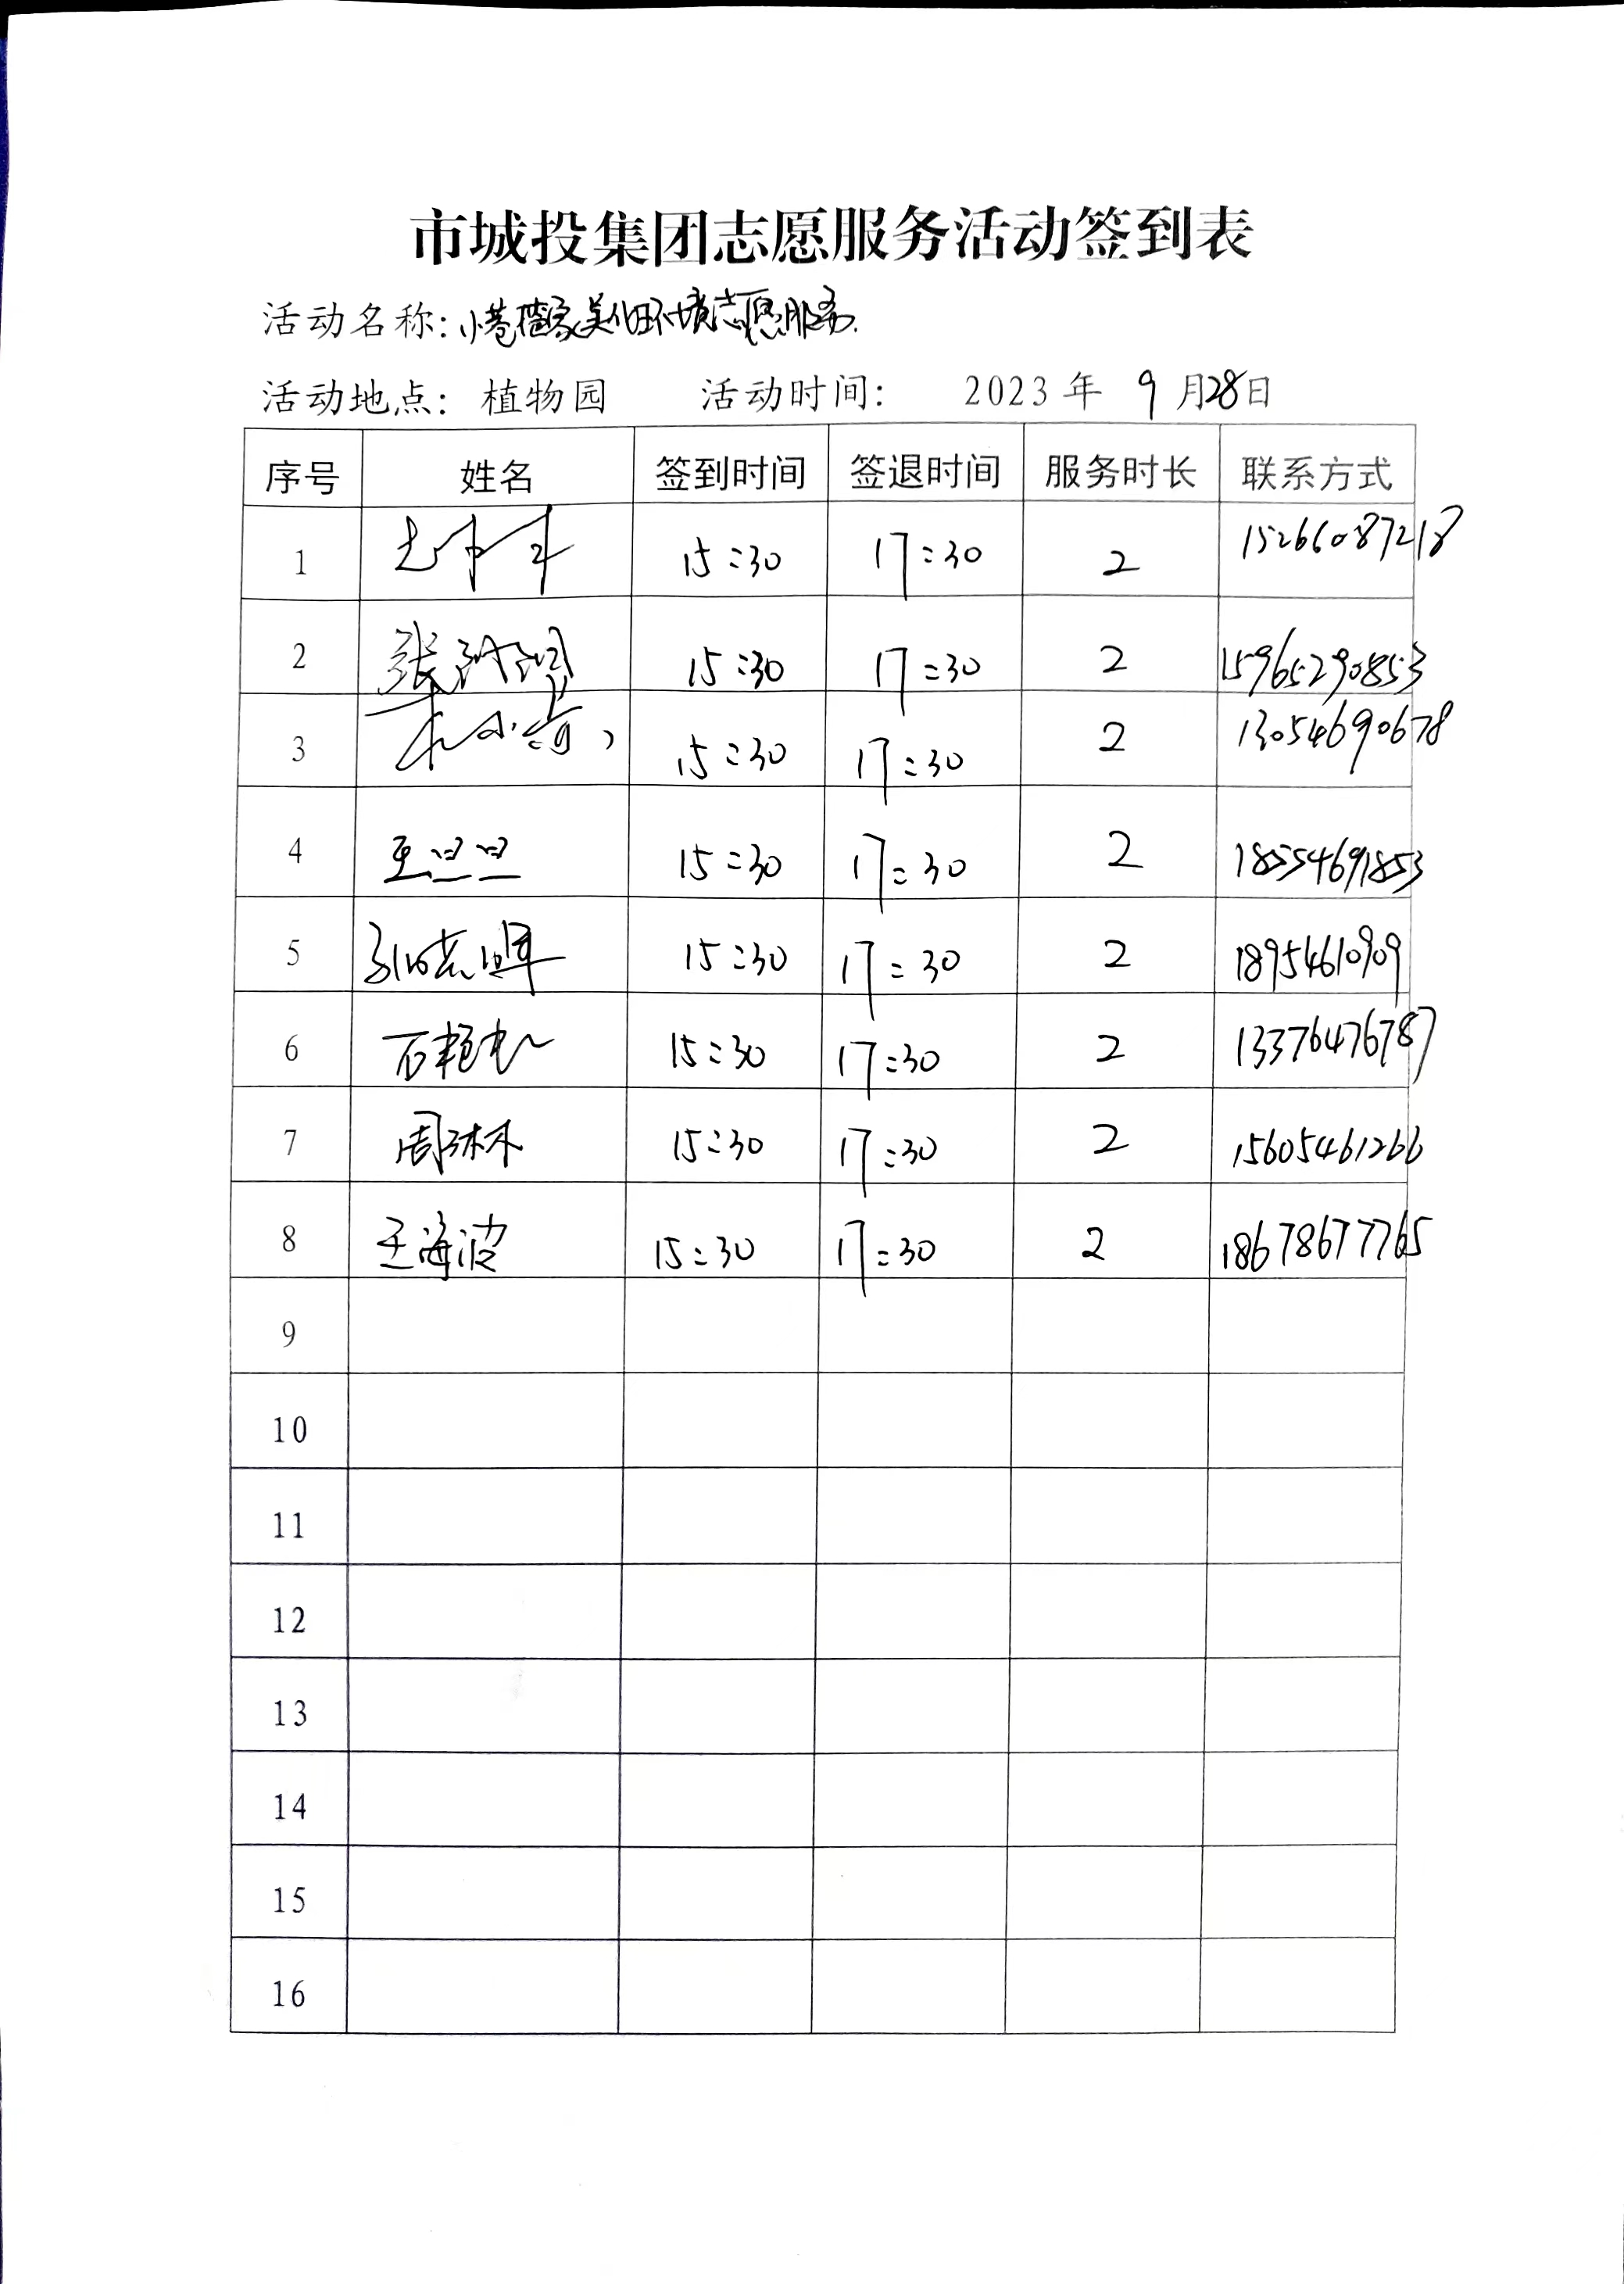 市城投集团志愿服务活动签到表
活动名称: 美化环境志愿服务.
活动地点: 植物园 活动时间: 2023年 9月28日
序号 姓名 签到时间 签退时间 服务时长 联系方式
1 15:30 17:30 2 15266087218
2 张 15:30 17:30 2 15965290853
3 15:30 17:30 2 13054690678
4 王旦旦 15:30 17:30 2 18554691853
5 15:30 17:30 2 18954610909
6 石艳 15:30 17:30 2 13376476787
7 周琳 15:30 17:30 2 15605461266
8 王海波 15:30 17:30 2 18678677765
9
10
11
12
13
14
15
16